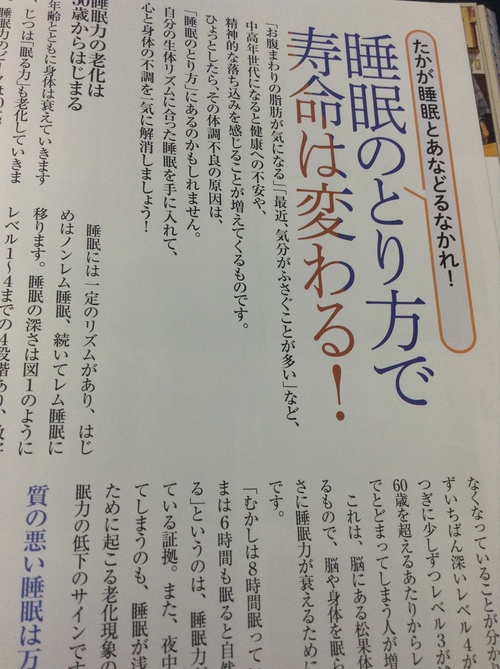 たかが睡眠とあなどるなかれ!
睡眠のとり方で
寿命は変わる!
「お腹まわりの脂肪が気になる」「最近、気分がふさぐことが多い」など、
中高年世代になると健康への不安や、
精神的な落ち込みを感じることが増えてくるものです。
ひょっとしたら、その体調不良の原因は、
「睡眠のとり方」にあるのかもしれません。
自分の生体リズムに合った睡眠を手に入れて、
心と身体の不調を一気に解消しましょう!
睡眠力の老化は
30歳からはじまる
年齢とともに身体は衰えていきます
、じつは「眠る力」も老化していきま
睡眠には一定のリズムがあり、はじ
めはノンレム睡眠、続いてレム睡眠に
移ります。睡眠の深さは図1のように
レベル1〜4までの4段階あり、
なくなっていることが分か
ずいちばん深いレベル4が
つぎに少しずつレベル3が
60歳を超えるあたりからレ
でとどまってしまう人が増
これは、脳にある松果体
るもので、脳や身体を眠ら
さに睡眠力が衰えるために
です。
「むかしは8時間眠って
まは6時間も眠ると自然
る」というのは、睡眠力が
ている証拠。また、夜中
てしまうのも、睡眠が浅
ために起こる老化現象の
眠力の低下のサインです
質の悪い睡眠は万